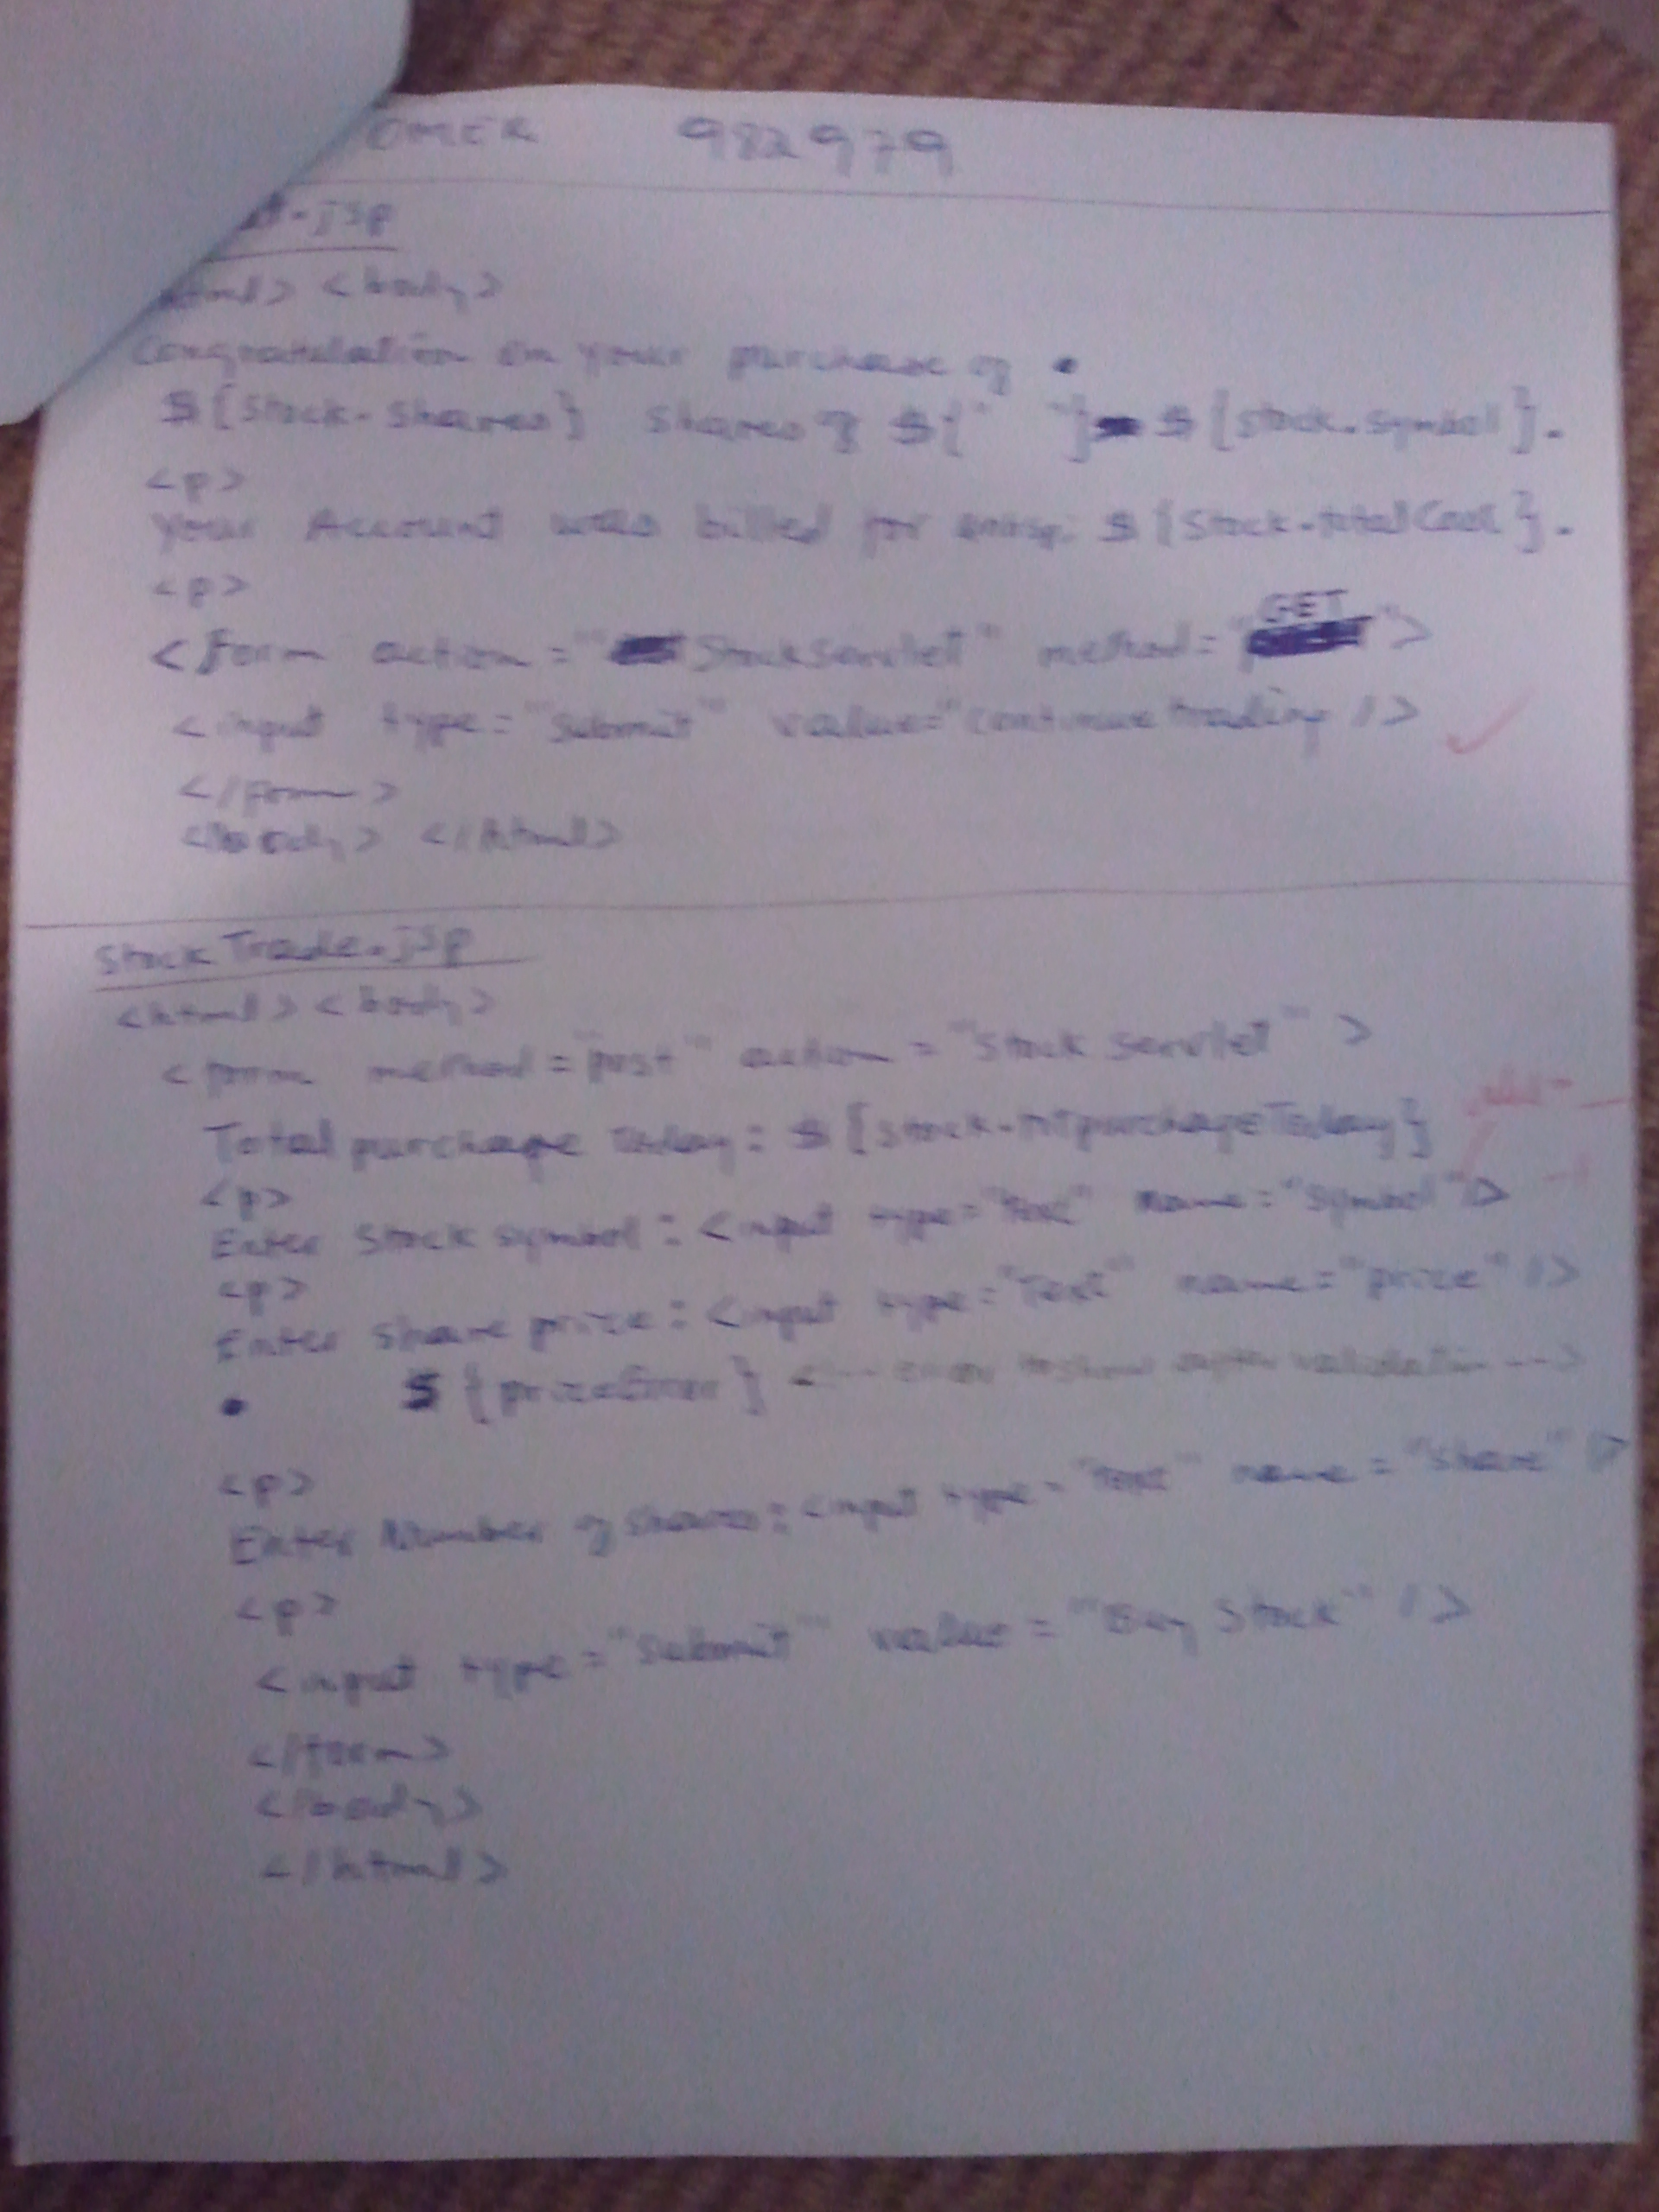 OMER 982979
t.jsp
html> <body>
Congratulation on your purchase of
${stock.shares} shares of ${" "} ${stock.symbol}.
<p>
Your Account was billed for ${stock.totalCost}.
<p>
<form action="StockServlet" method="GET">
<input type="submit" value="continue trading />
</form>
</body> </html>
StockTrade.jsp
<html> <body>
<form method="post" action="StockServlet">
Total purchage Today: ${stock.totpurchageToday}
<p>
Enter Stock symbol: <input type="text" name="symbol"/>
<p>
Enter share prize: <input type="text" name="prize" />
${prizeError} <!-- error to show after validation -->
<p>
Enter Number of shares: <input type="text" name="share" />
<p>
<input type="submit" value="Buy Stock" />
</form>
</body>
</html>